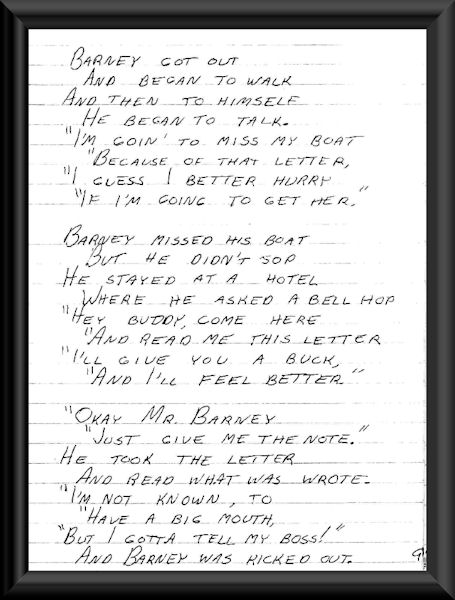 BARNEY GOT OUT
AND BEGAN TO WALK
AND THEN TO HIMSELF
HE BEGAN TO TALK.
"I'M GOIN' TO MISS MY BOAT
"BECAUSE OF THAT LETTER,
"I GUESS I BETTER HURRY
"IF I'M GOING TO GET HER."
BARNEY MISSED HIS BOAT
BUT HE DIDN'T SOP
HE STAYED AT A HOTEL
WHERE HE ASKED A BELL HOP
"HEY BUDDY, COME HERE
"AND READ ME THIS LETTER
"I'LL GIVE YOU A BUCK,
"AND I'LL FEEL BETTER"
"OKAY MR. BARNEY
"JUST GIVE ME THE NOTE."
HE TOOK THE LETTER
AND READ WHAT WAS WROTE.
"I'M NOT KNOWN, TO
"HAVE A BIG MOUTH,
"BUT I GOTTA TELL MY BOSS!"
AND BARNEY WAS KICKED OUT.